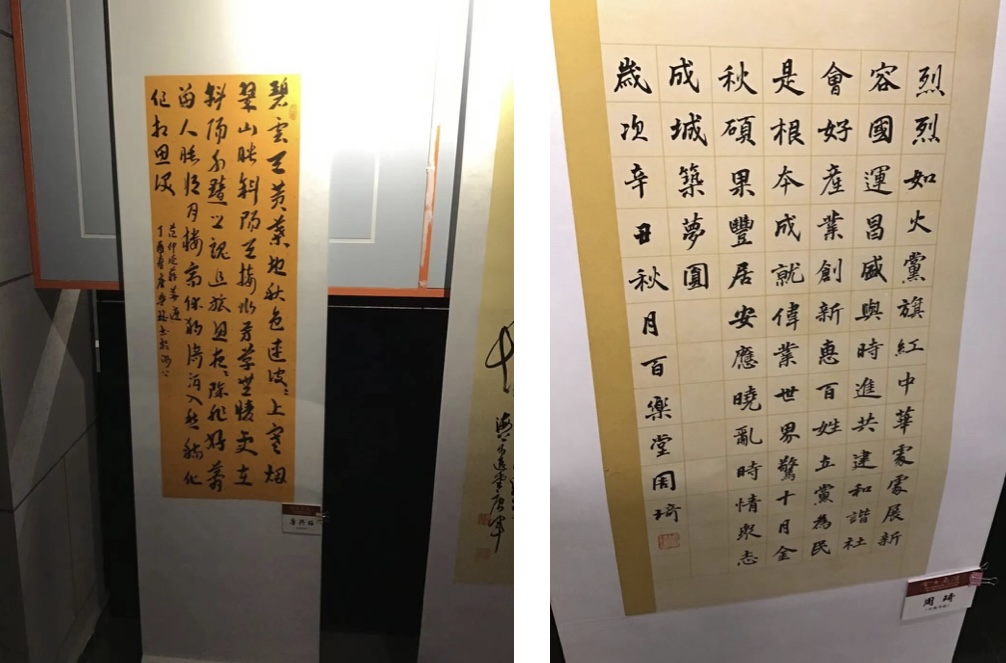 碧雲天黃葉地秋色連波〻上寒烟
翠山映斜陽天接水芳草無情更在
斜陽外黯鄉魂追旅思夜〻除非好夢
留人睡明月樓高休獨倚酒入愁腸化
作相思淚
范仲淹蘇幕遮
烈烈如火黨旗紅中華處處展新
容國運昌盛與時進共建和諧社
會好產業創新惠百姓立黨為民
是根本成就偉業世界驚十月金
秋碩果豐居安應曉亂時情眾志
成城築夢圓
歲次辛丑秋月百樂堂周琦
周琦